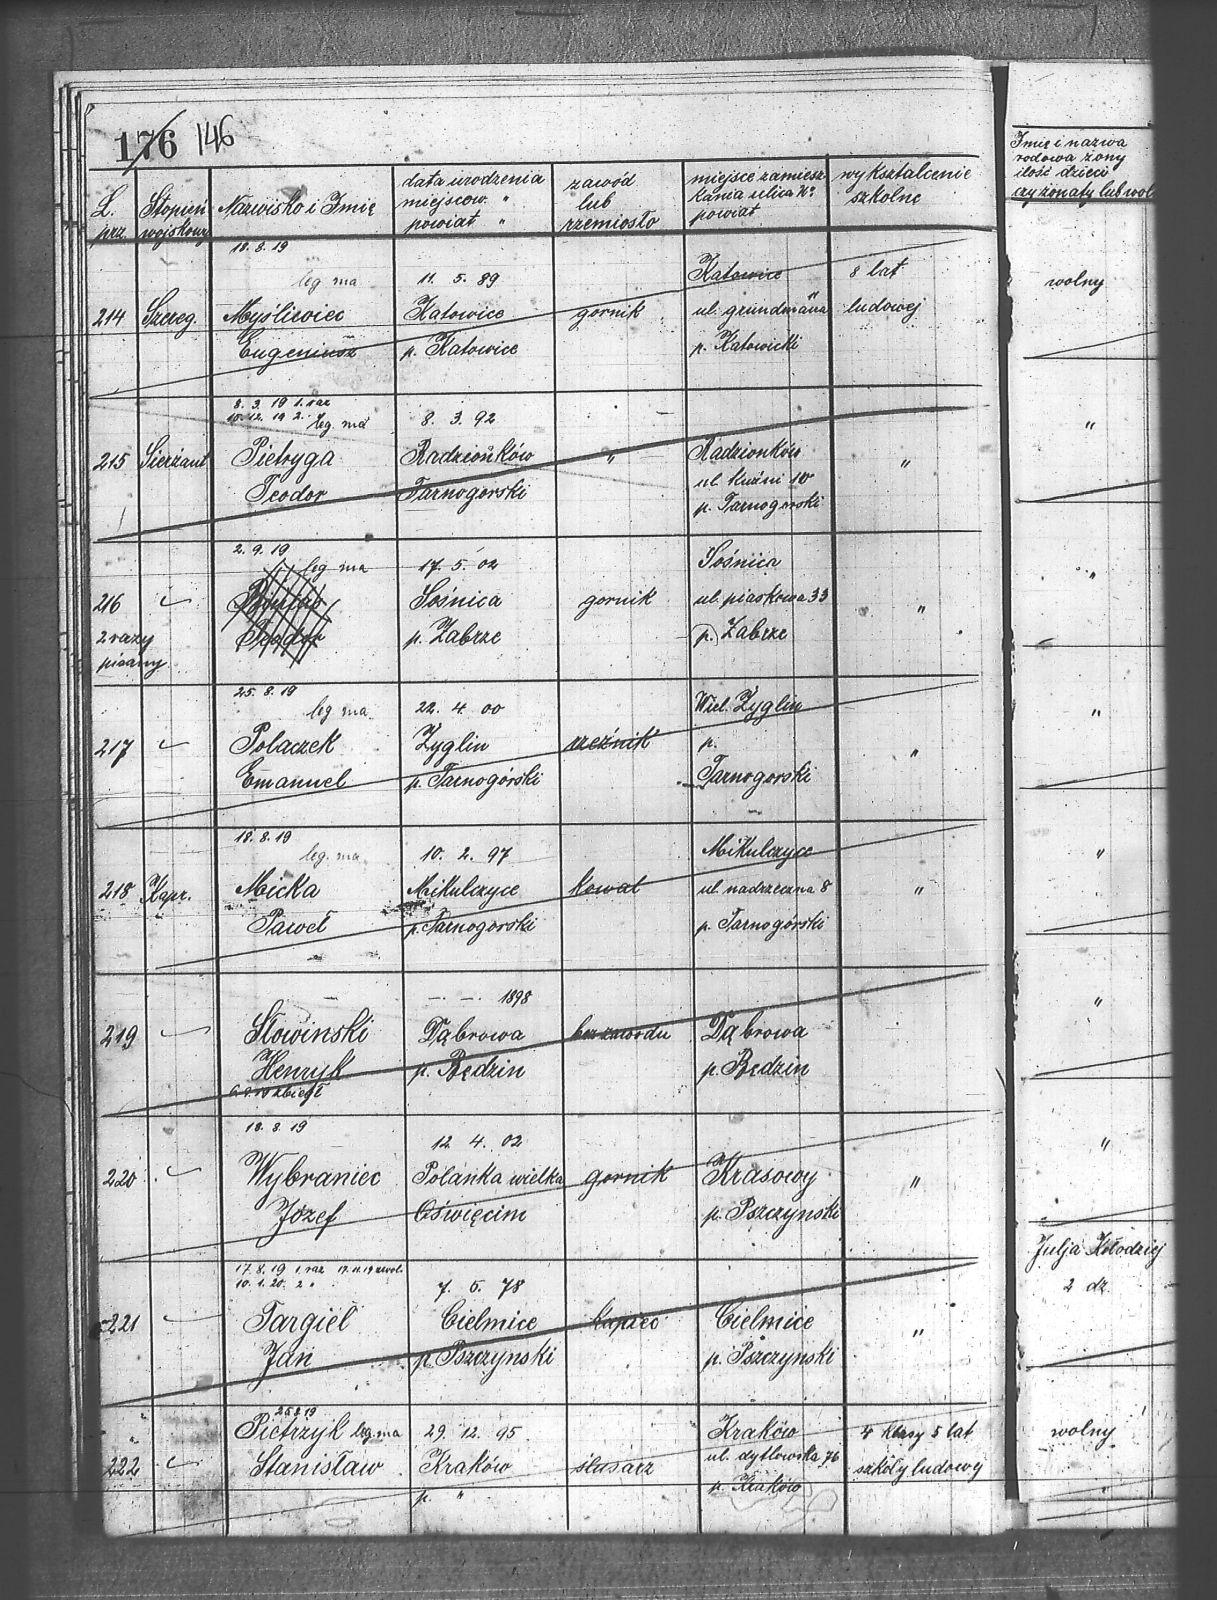 176 146
L. prz.
Stopień wojskowy
Nazwisko i Imię
data urodzenia
miejscow. "
powiat "
zawód
lub
rzemiosło
miejsce zamiesz-
kania ulica №
powiat
wykształcenie
szkolne
Imię i nazwa
rodowa żony
ilość dzieci
czy żonaty lub wol
18. 8. 19
leg ma 11. 5. 89 Katowice 8 lat wolny
214 Szereg. Myśliwiec Katowice gornik ul. grundmana ludowej
Eugeniusz p. Katowice p. Katowicki
8. 3. 19 1. raz
10. 12. 19 2. "
leg. ma 8. 3. 92 "
215 Sierżant Pietryga Radzionków " Radzionków "
Teodor Tarnogorski ul. kuźni 10
p. Tarnogorski
2. 9. 19 Sośnica
leg ma 17. 5. 02 "
216 Sośnica gornik ul. piaskowa 33 "
2 razy Teodor p. Zabrze p. Zabrze
pisany
25. 8. 19
leg ma 22. 4. 00 Wiel. Zyglin "
217 Polaczek Zyglin rzeźnik p. "
Emanuel p. Tarnogórski Tarnogorski
18. 8. 19
leg. ma 10. 2. 97 Mikulczyce "
218 Kapr. Micka Mikulczyce kowal ul. nadrzeczna 8 "
Paweł p. Tarnogorski p. Tarnogórski
— — — 1898 "
219 Słowinski Dąbrowa bez zawodu Dąbrowa
Henryk p. Będzin p. Będzin
6. 9. 19 zbiegł
18. 8. 19
12. 4. 02 "
220 Wybraniec Polanka wielka gornik Krasowy "
Józef Oświęcim p. Pszczynski
17. 8. 19 1. raz
10. 1. 20. 2 "
Julja Kołodziej
7. 5. 78 2 dz.
221 Targiel Cielmice kupiec Cielmice "
Jan p. Pszczynski p. Pszczynski
25 8 19
Pietrzyk leg. ma 29. 12. 95 Kraków 4 klasy 5 lat wolny
222 Stanisław Kraków ślusarz ul. dytlowska 76 szkoły ludowej
p. " p. Kraków